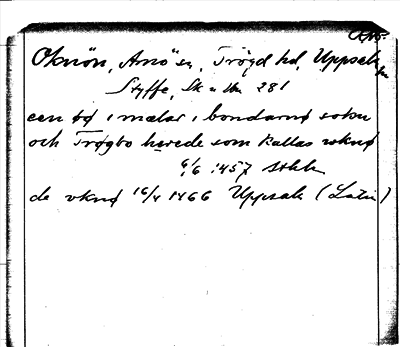 Oknön, Arnö sn, Trögd hd, Uppsala
Styffe, Sk u Un 281
een ø i mælar i bondarnø sokn
och Trøgbo herede som kallas voknø
6/6 1457 sthlm
de vknø 16/4 1466 Uppsala (Latin)